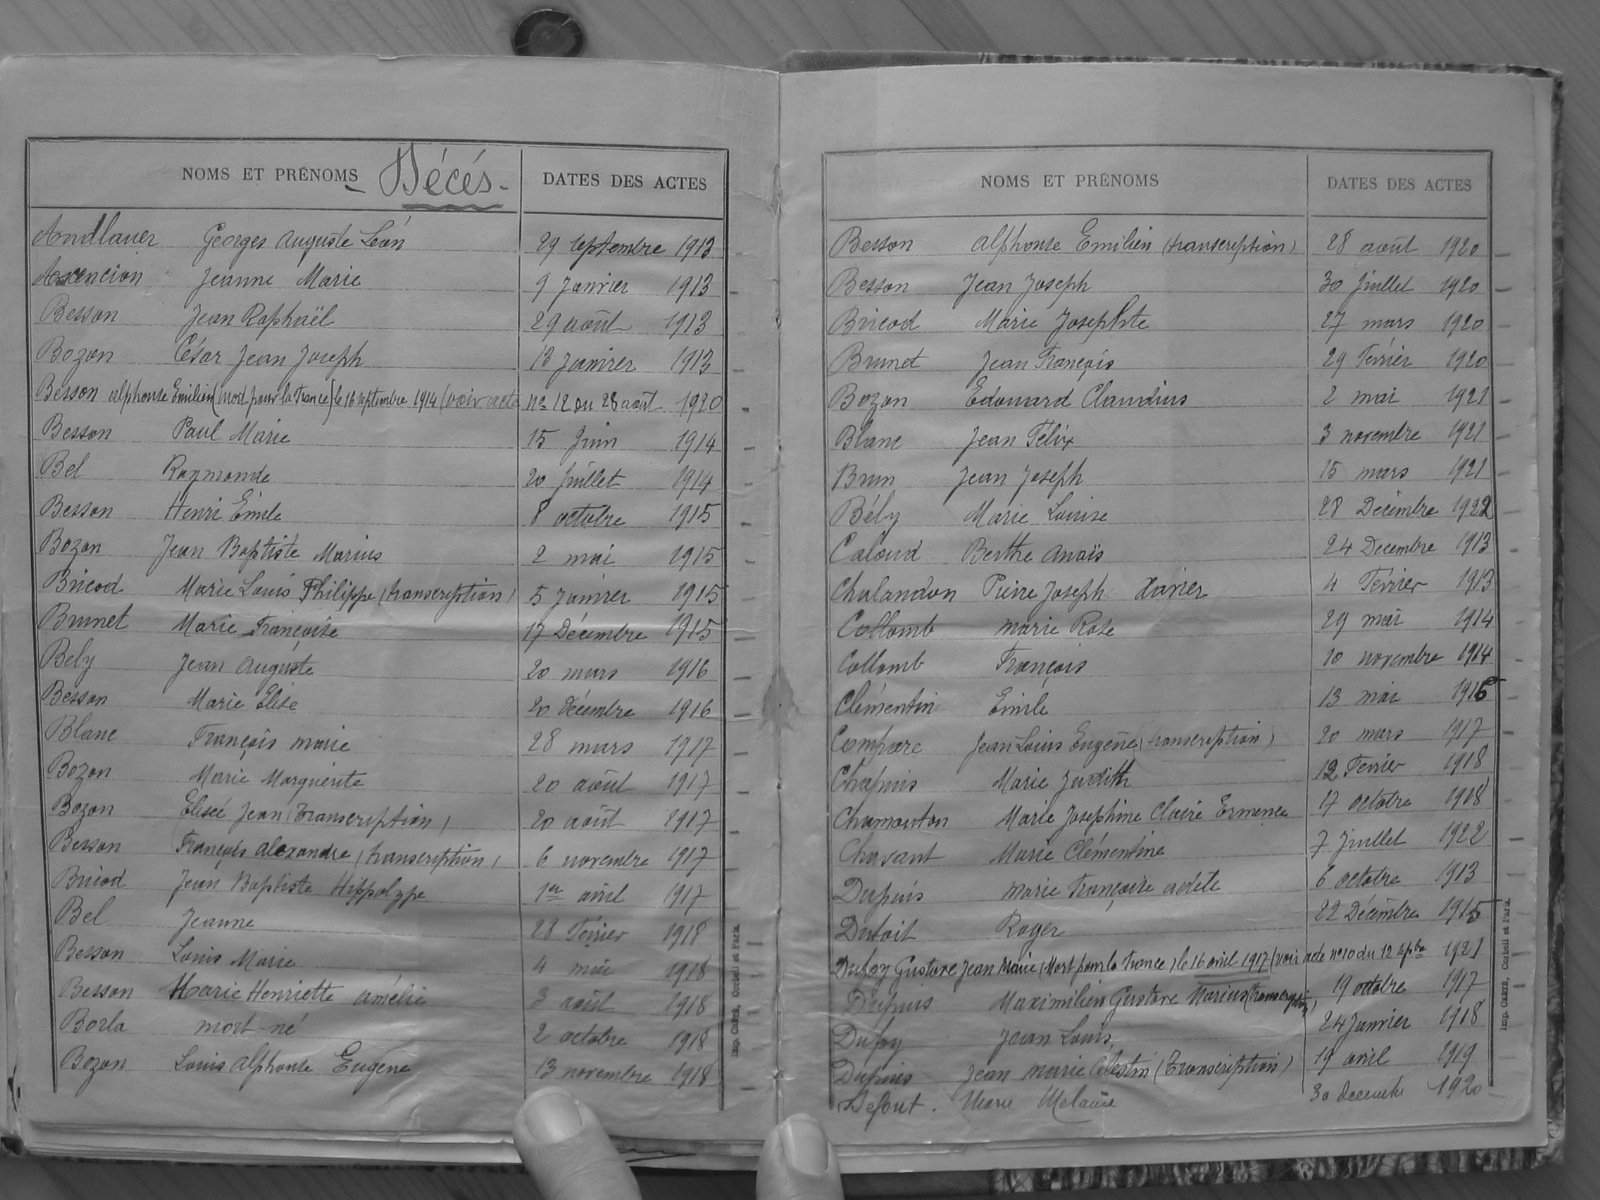 NOMS ET PRÉNOMS - Décés - DATES DES ACTES
Andlauer Georges Auguste Léon 29 septembre 1913
Ascencion Jeanne Marie 9 Janvier 1913
Besson Jean Raphaël 29 août 1913
Bozon César Jean Joseph 18 Janvier 1913
Besson alphonse Emilien (Mort pour la France) le 16 septembre 1914 (voir acte no 12 du 28 août 1920
Besson Paul Marie 15 Juin 1914
Bel Raymonde 20 Juillet 1914
Besson Henri Émile 8 octobre 1915
Bozon Jean Baptiste Marius 2 mai 1915
Bricod Marie Louis Philippe (transcription) 5 Janvier 1915
Brunet Marie Françoise 17 Décembre 1915
Bely Jean Auguste 20 mars 1916
Besson Marie Elise 20 Décembre 1916
Blanc François marie 28 mars 1917
Bozon Marie Marguerite 20 août 1917
Bozon Elisée Jean (transcription) 20 août 1917
Besson François alexandre (transcription) 6 novembre 1917
Bricod Jean Baptiste Hippolype 1er avril 1917
Bel Jeanne 28 Février 1918
Besson Louis Marie 4 mai 1918
Besson Marie Henriette amélie 3 août 1918
Borla mort-né 2 octobre 1918
Bozon Louis Alphonse Eugène 13 novembre 1918
NOMS ET PRÉNOMS DATES DES ACTES
Besson Alphonse Emilien (transcription) 28 août 1920
Besson Jean Joseph 30 Juillet 1920
Bricod Marie Josephte 27 mars 1920
Brunet Jean François 29 Février 1920
Bozon Edouard Claudius 2 mai 1921
Blanc Jean Félix 3 novembre 1921
Brun Jean Joseph 15 mars 1921
Bély Marie Louise 28 Décembre 1922
Caloud Berthe Anaïs 24 Decembre 1913
Chalandon Pierre Joseph Xavier 4 Février 1913
Collomb Marie Rose 29 mai 1914
Collomb François 10 novembre 1914
Clémentin Emile 13 mai 1916
Compare Jean Louis Eugène (transcription) 20 mars 1917
Chapuis Marie Judith 12 Février 1918
Chamonton Marie Josephine Claire Ermence 17 octobre 1918
Chavant Marie Clémentine 7 Juillet 1922
Dupuis Marie Françoise 6 octobre 1913
Dutoit Roger 22 Décembre 1915
Dufoy Gustave Jean Marie (Mort pour la France) le 16 avril 1917 (voir acte no 10 du 12 1921
Dupuis Maximilien Gustave Marius (transcription) 19 octobre 1917
Dufoy Jean Louis 24 Janvier 1918
Dupuis Jean Marie Célestin (transcription) 19 avril 1919
Defout. Marie Mélanie 30 decembre 1920
Imp. Corbeil et Paris.
Imp. Corbeil et Paris.